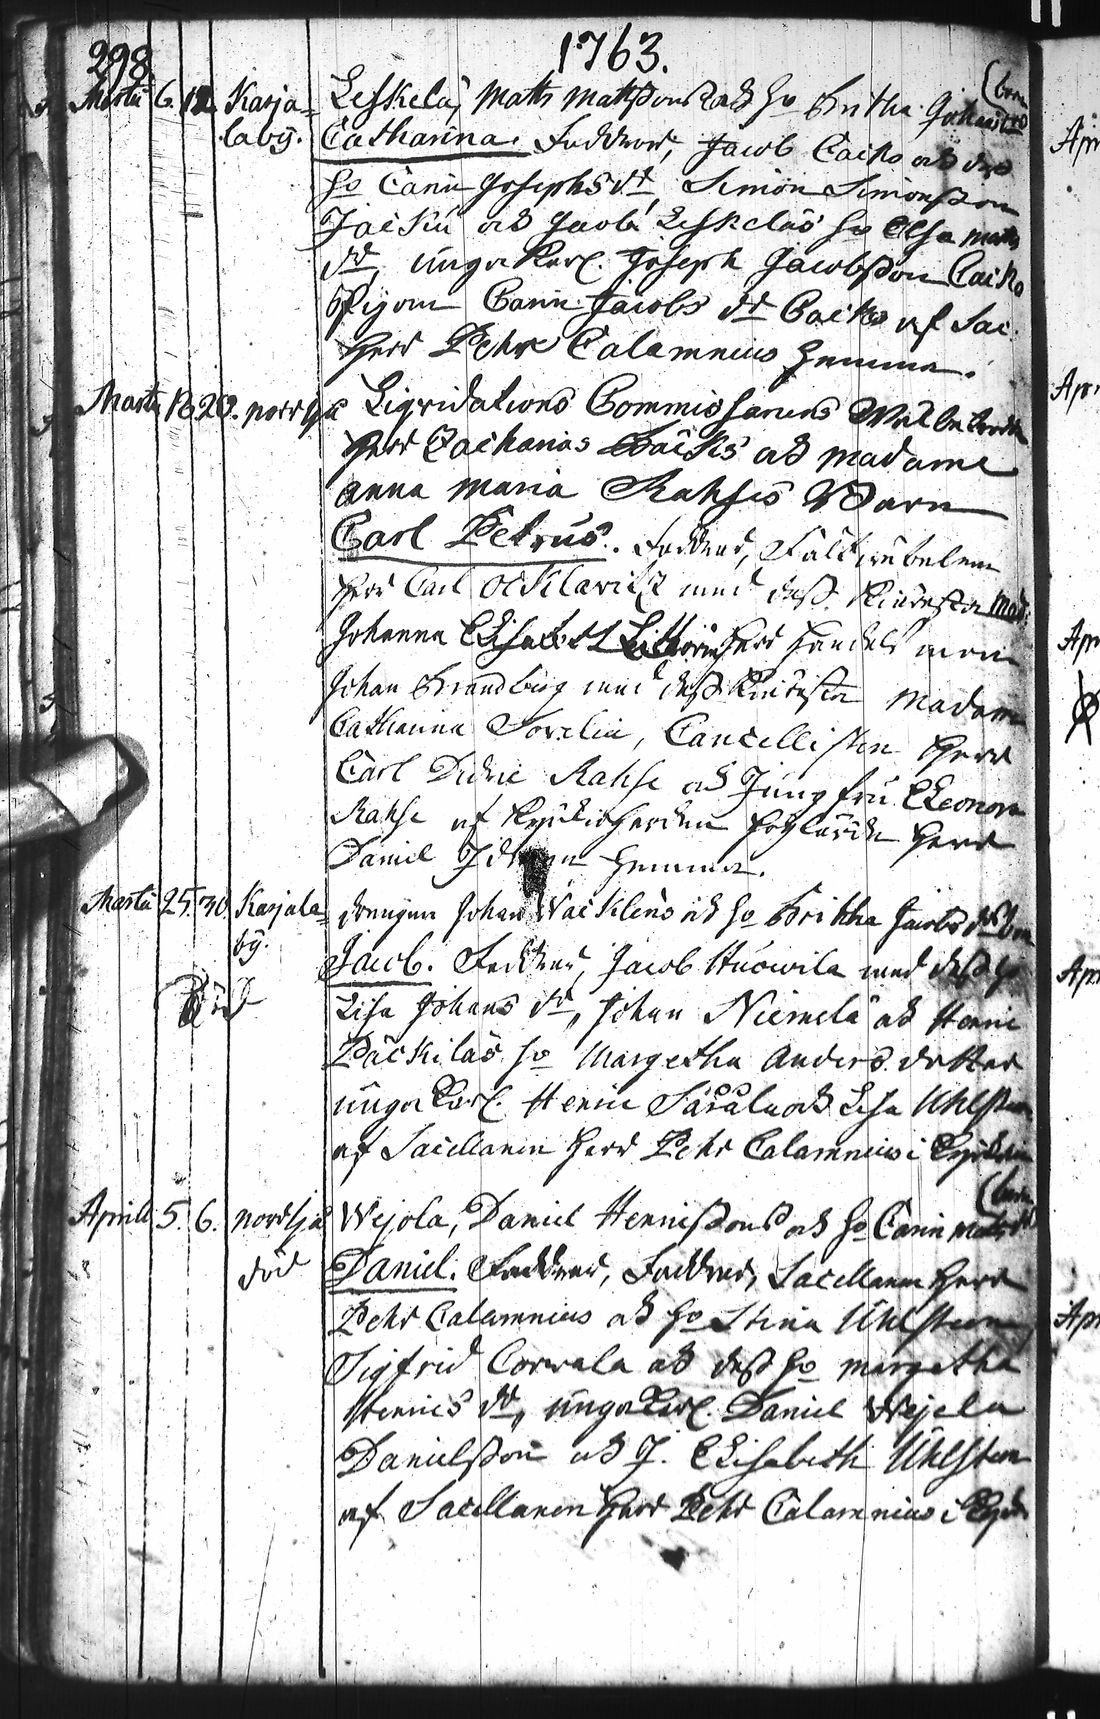 298
1763.
Martii 6. 12. Karja=
laby.
Leskelä, Matts Mattsons och ho Britha Johans dr
(barn
Catharina. Faddrar, Jacob Caiko och des
ho Carin Josephs dr, Simon Simonsson
Jacku och Jacob Leskeläs ho Elsa Matts
dr, unga Karl. Joseph Jacobsson Caiko
Pigan Carin Jacobs dr Caiko af Sac.
Herr Pehr Calamnius hemma.
Martii 18. 20. norrsjö
Liqvidations Commissariens Wälbetrodde
Herr Zacharias Backs och madame
Anna Maria Rahses Barn
Carl Petrus. Faddrar, Fält
Herr Carl med dess Kiäresta Mad:
Johanna Elisabeth Herr Handels man
Johan Brandberg med dess Kiäresta Madam
Catharina Forelia, Cancellisten Herr
Carl Didric Rahse och Jungfru Eleonora
Rahse af Kyrkioherden Höglärde Herr
Daniel hemma.
Martii 25. 30. Karjala=
by.
död
drängen Johan Wäcklens och ho Britha Jacobs dr barn
Jacob. Faddrar, Jacob Huowila med dess ho
Lisa Johans dr, Johan Niemelä och Henric
Päckiläs ho Margetha Anders dotter
unga Karl. Henric Säräla och Lisa Uhlsten
af Sacellanen Herr Pehr Calamnius i Kyrckan
Aprill 5. 6. norrsjö
död
(barn
Wejola, Daniel Henricssons och ho Carin Matts dr
Daniel. Faddrar, Faddrar, Sacellanen Herr
Pehr Calamnius och ho Stina Uhlsten
Sigfrid Corwala och dess ho Margetha
Henrics dr, unga Karl. Daniel Wejola
Danielsson och J. Elisabeth Uhlsten
af Sacellanen Herr Pehr Calamnius i Kyrck